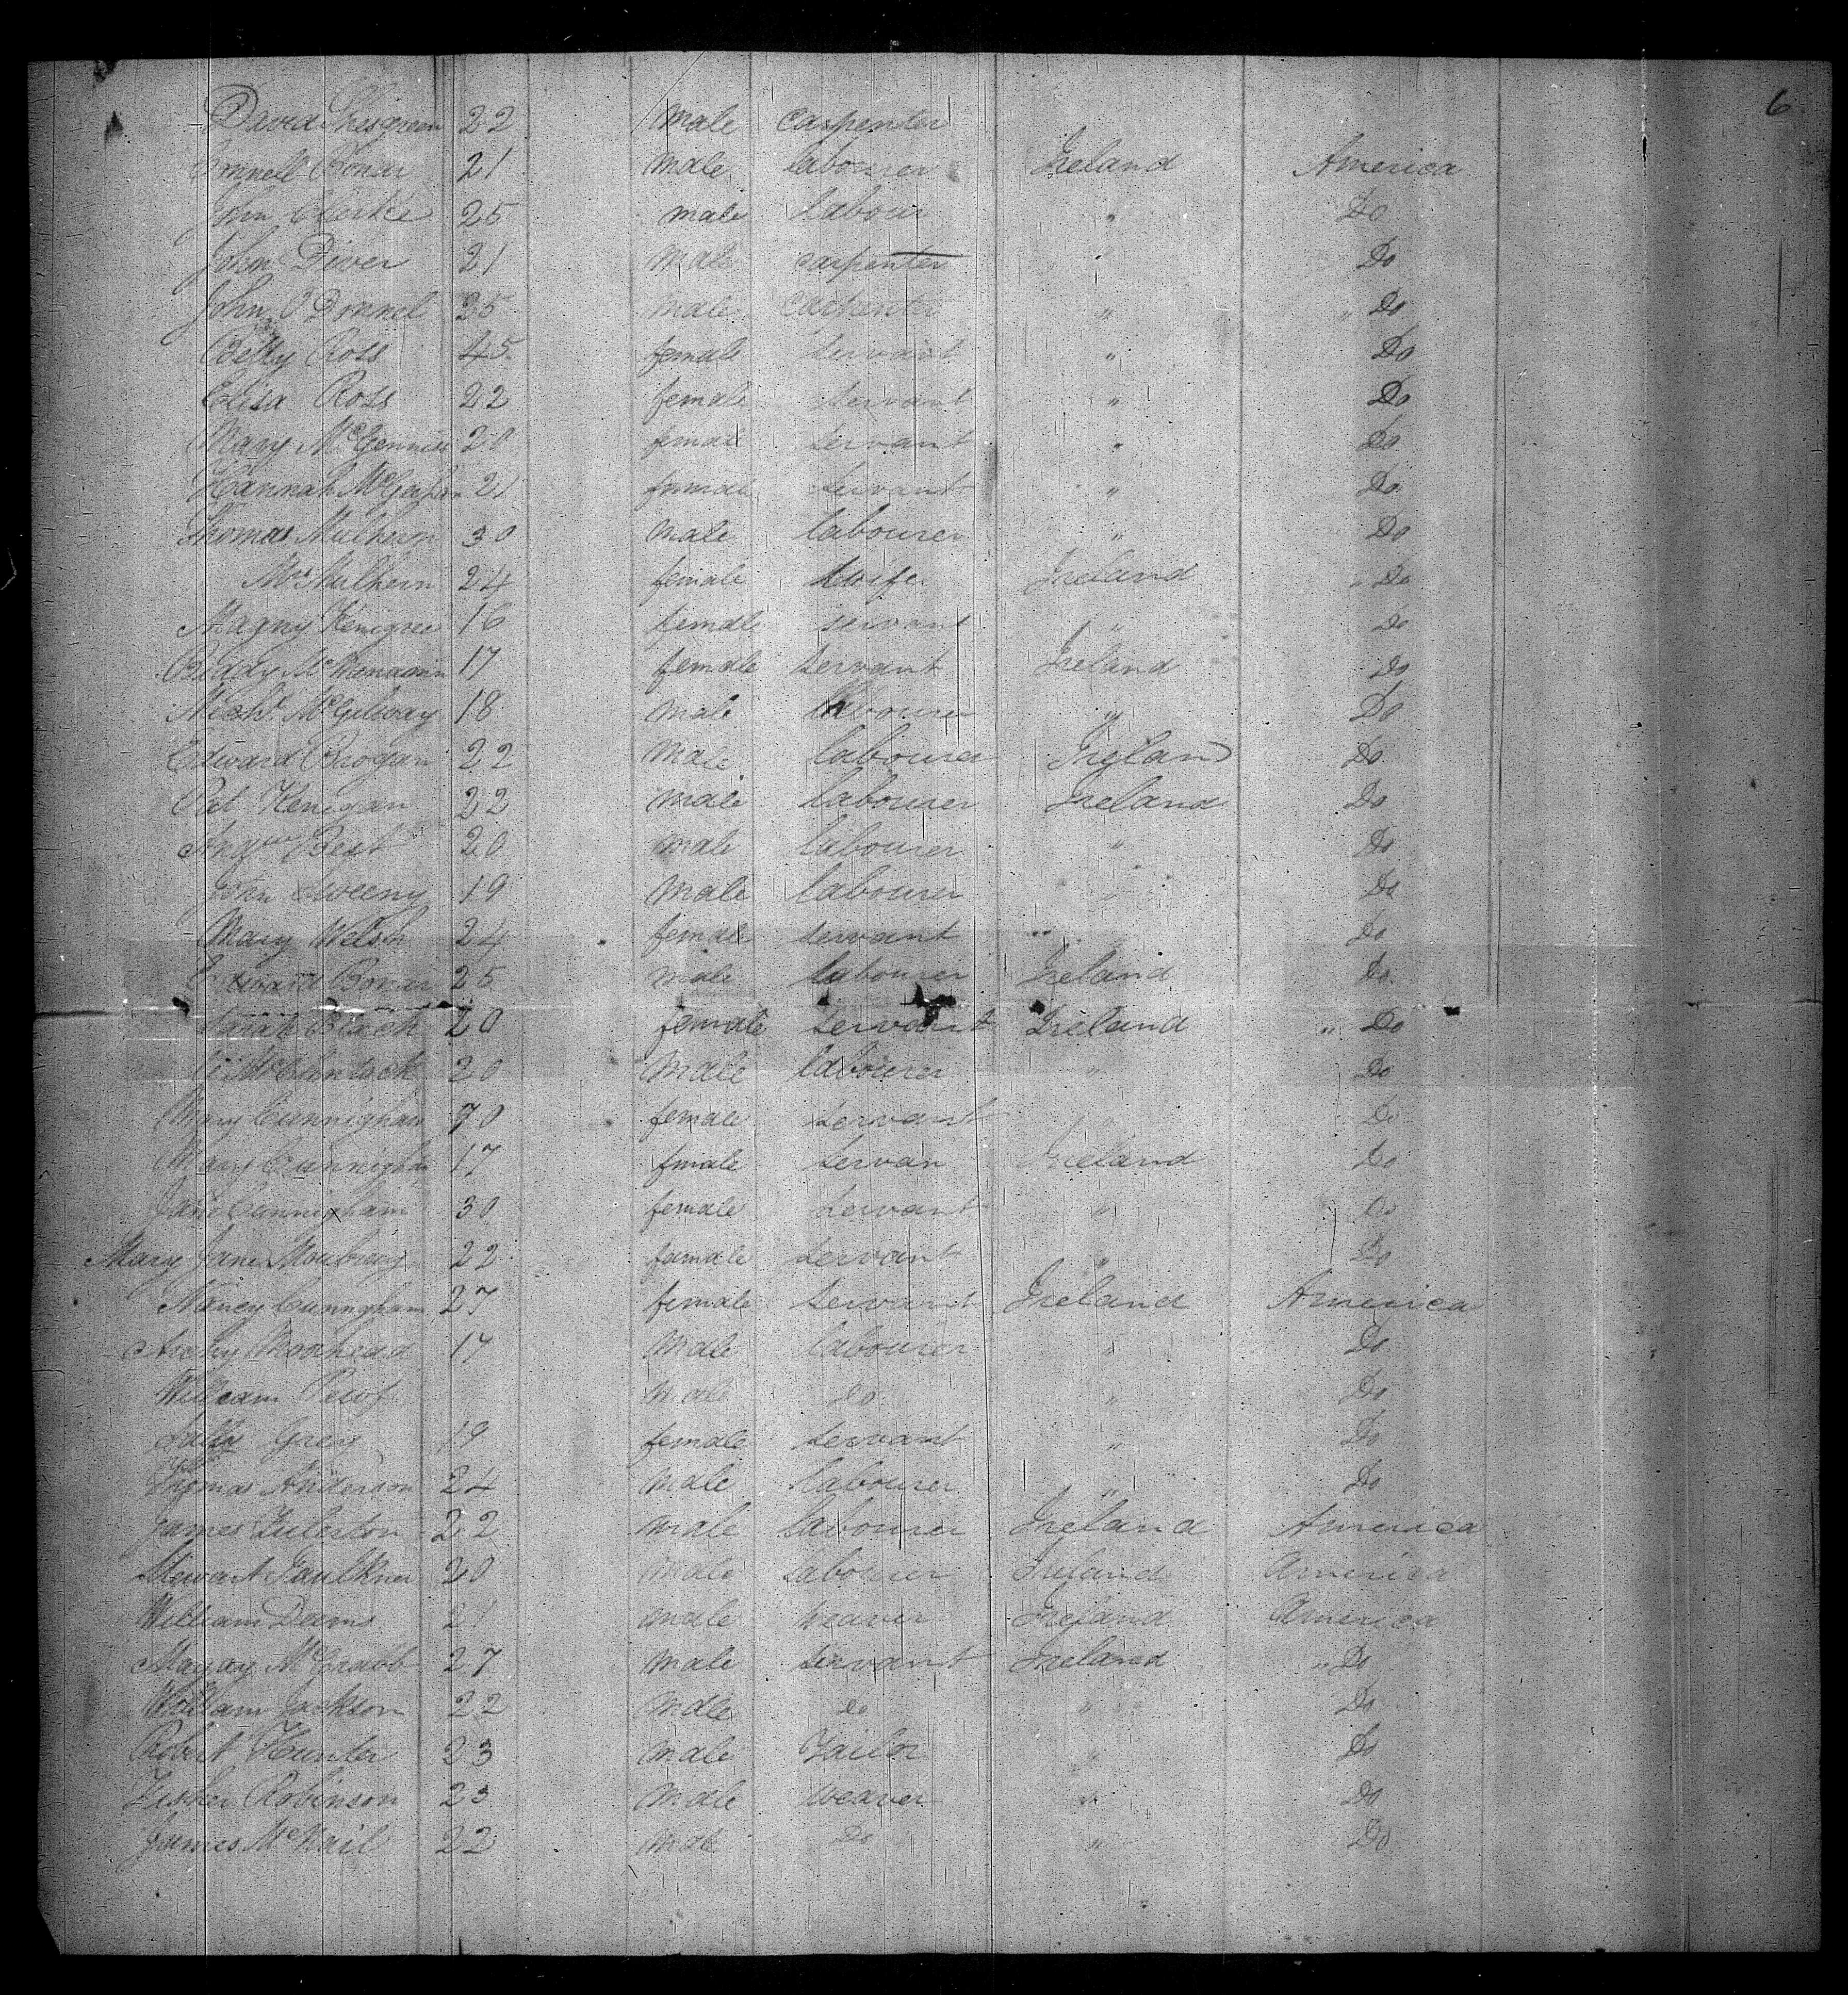 6
David Shesgreen 22 male carpenter
Connell Bonar 21 male labourer Ireland America
John Clarke 25 male labour " Do
John Diver 21 male carpenter " Do
John O Donnel 25 male carpenter " " Do
Betty Ross 45 female servant " Do
Elisa Ross 22 female servant " Do
Mary McGenniss 20 female servant " Do
Hannah 21 female servant " Do
Thomas Mulhern 30 male labourer " Do
Mrs Mulhern 24 female wife Ireland " Do
16 female servant " Do
Biddy 17 female servant Ireland Do
Michl McGilway 18 male labourer " Do
Edward Brogan 22 male labourer Ireland Do
Pat Kenigan 22 male labourer Ireland Do
Best 20 male labourer " Do
John Sweeny 19 male labourer " Do
Mary Welsh 24 female servant " Do
Edward Bonar 25 male labourer Ireland Do
Sarah Black 20 female servant Ireland " Do
McClintock 20 male labourer " Do
Mary Cunnigham 70 female servant " Do
Mary Cunnigham 17 female servan Ireland Do
Jane Cunnigham 30 female servant " Do
Mary Jane Moubray 22 female servant " Do
Nancy Cunngham 27 female servant Ireland America
Archy Moorhead 17 male labourer " Do
William male do " Do
Grey 19 female servant " Do
Thomas Anderson 24 male labourer " Do
James Fulerton 22 male labourer Ireland America
Stewart Faulkner 20 male labourer Ireland America
William Deems 21 male weaver Ireland America
27 male servant Ireland " Do
William Jackson 22 male do " Do
Robert Hunter 23 male Tailor " Do
Fisher Robinson 23 male weaver " Do
James McNail 22 male Do " Do